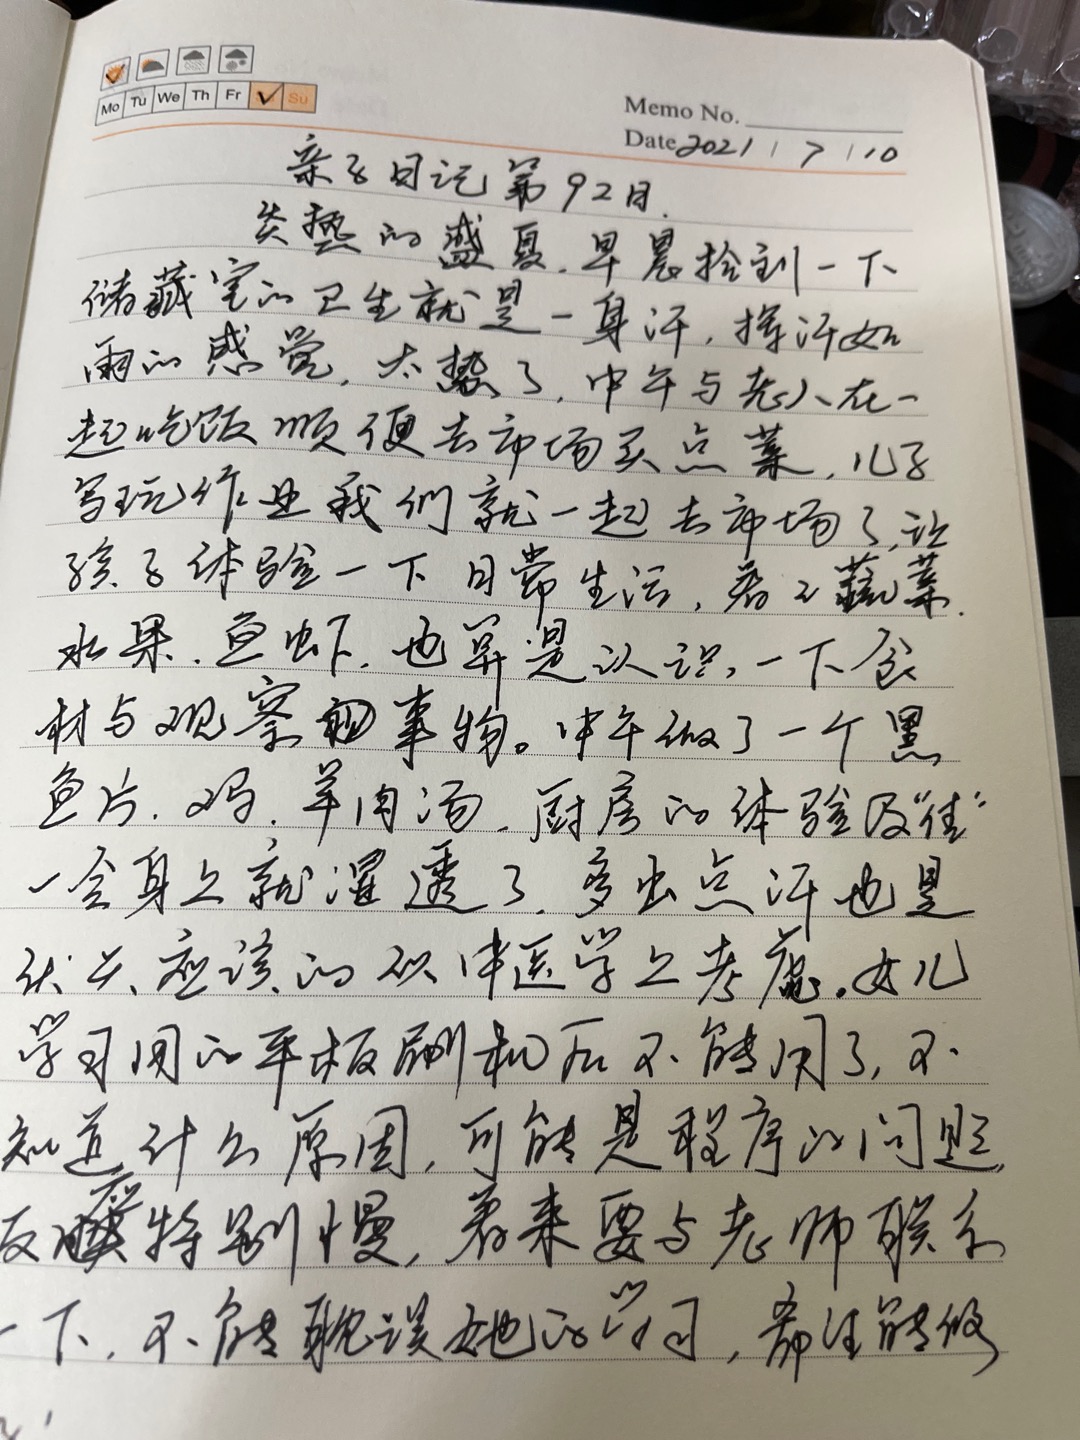 Mo Tu We Th Fr Su
Memo No.
Date 2021 / 7 / 10
亲子日记第92日.
炎热的盛夏.早晨捡到一下
储藏室的卫生就是一身汗,挥汗如
雨的感觉,太热了,中午与老人在一
起吃饭顺便去市场买点菜,儿子
写玩作业我们就一起去市场了,让
孩子体验一下日常生活,看了蔬菜.
水果.鱼虾,也算是认识,一下食
材与观察事物。中午做了一个黑
鱼片.鸡.羊肉汤,厨房的体验
一会身上就湿透了,多出点汗也是
伏天应该的从中医学上考虑.女儿
学习用的平板刷机后不能用了,不
知道什么原因,可能是程序的问题,
反应特别慢,看来要与老师联系
一下,不能耽误她的学习,希望能修